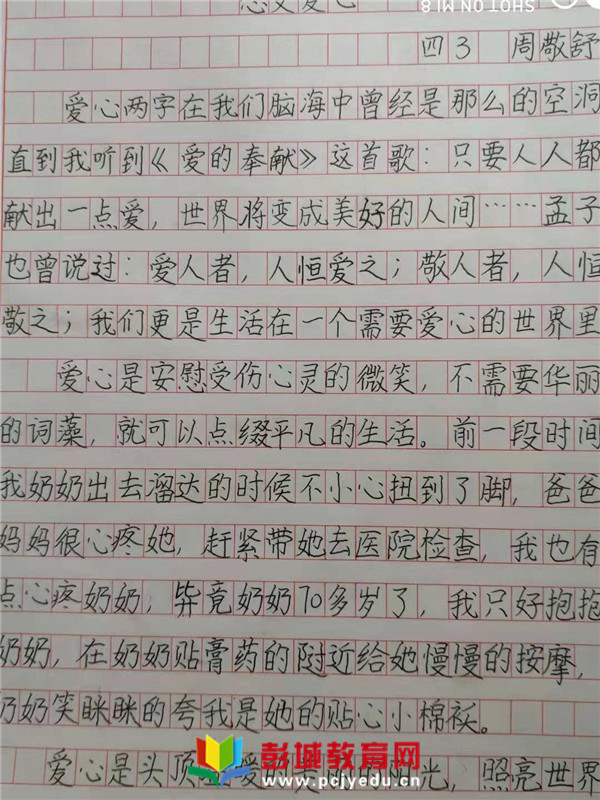 SHOT ON MI 8
四3 周敬舒
爱心两字在我们脑海中曾经是那么的空洞
直到我听到《爱的奉献》这首歌：只要人人都
献出一点爱，世界将变成美好的人间……孟子
也曾说过：爱人者，人恒爱之；敬人者，人恒
敬之；我们更是生活在一个需要爱心的世界里
爱心是安慰受伤心灵的微笑，不需要华丽
的词藻，就可以点缀平凡的生活。前一段时间
我奶奶出去溜达的时候不小心扭到了脚，爸爸
妈妈很心疼她，赶紧带她去医院检查，我也有
点心疼奶奶，毕竟奶奶70多岁了，我只好抱抱
奶奶，在奶奶贴膏药的附近给她慢慢的按摩，
奶奶笑眯眯的夸我是她的贴心小棉袄。
爱心是头顶 光，照亮世界
彭城教育网
www.pcjyedu.cn